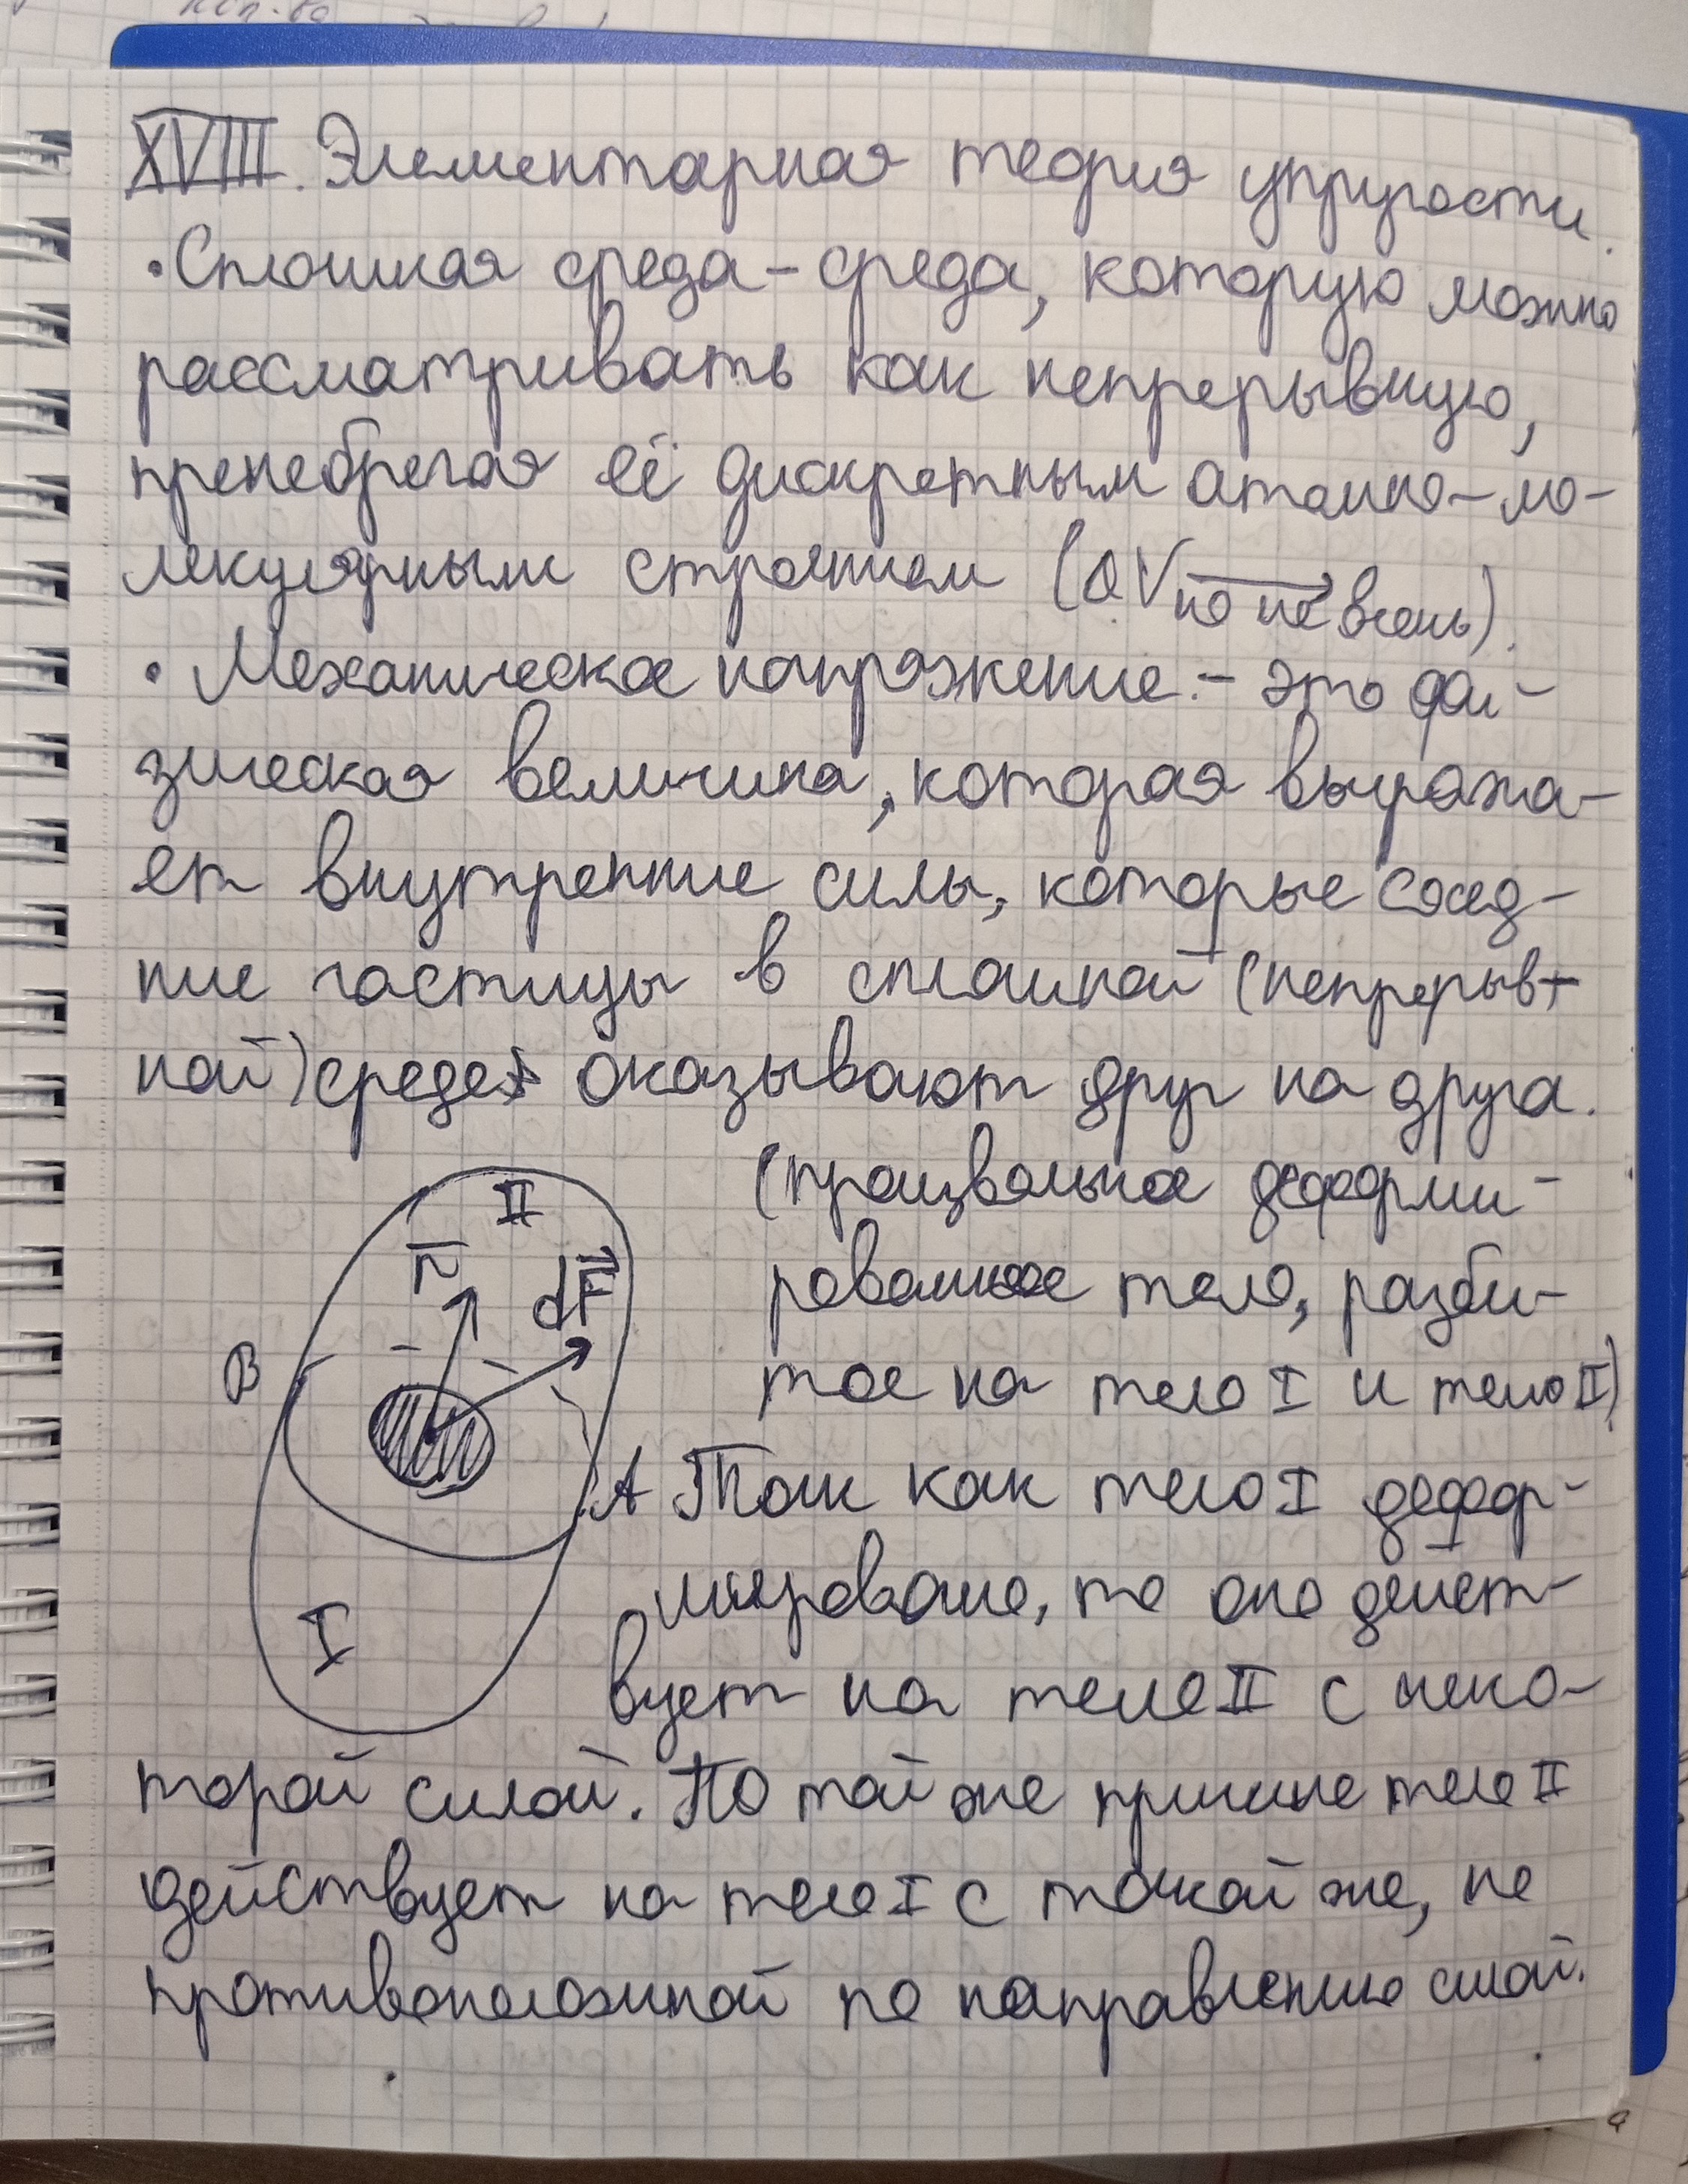 XVIII. Элементарная теория упругости.
• Сплошная среда – среда, которую можно
рассматривать как непрерывную,
пренебрегая её дискретным атомно-мо-
лекулярным строением (ΔV → но не всень).
• Механическое напряжение – это фи-
зическая величина, которая выража-
ет внутренние силы, которые сосед-
ние частицы в сплошной (непрерыв-
ной) среде оказывают друг на друга.
(произвольное деформи-
рованное тело, разби-
тое на тело I и тело II)
II
n
dF
B
A
I
Так как тело I дефор-
мировано, то оно дейст-
вует на тело II с неко-
торой силой. По той же причине тело II
действует на тело I с такой же, но
противоположной по направлению силой.